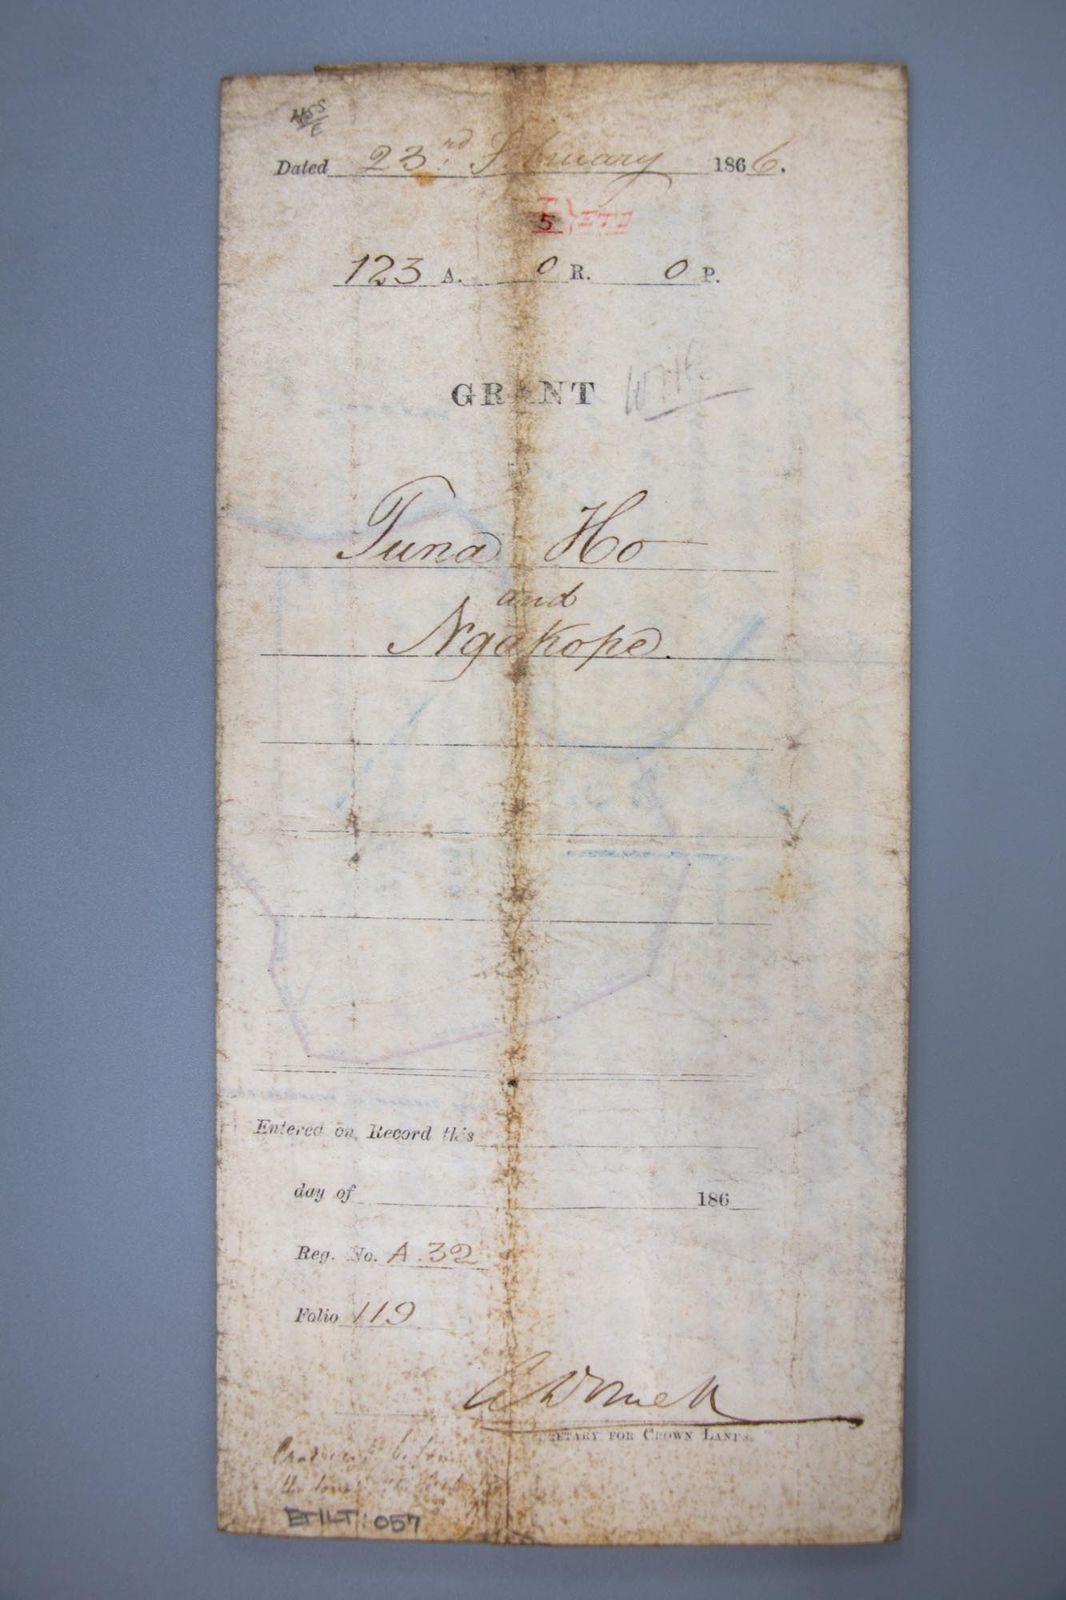 455/E
Dated 23rd. February 1866.
5
123 A. 0 R. 0 P.
GRANT
Tuna Ho
and
Ngakope.
Entered on Record this
day of 186
Reg. No. A.32
Folio 119
SECRETARY FOR CROWN LANDS.
ETILT:057